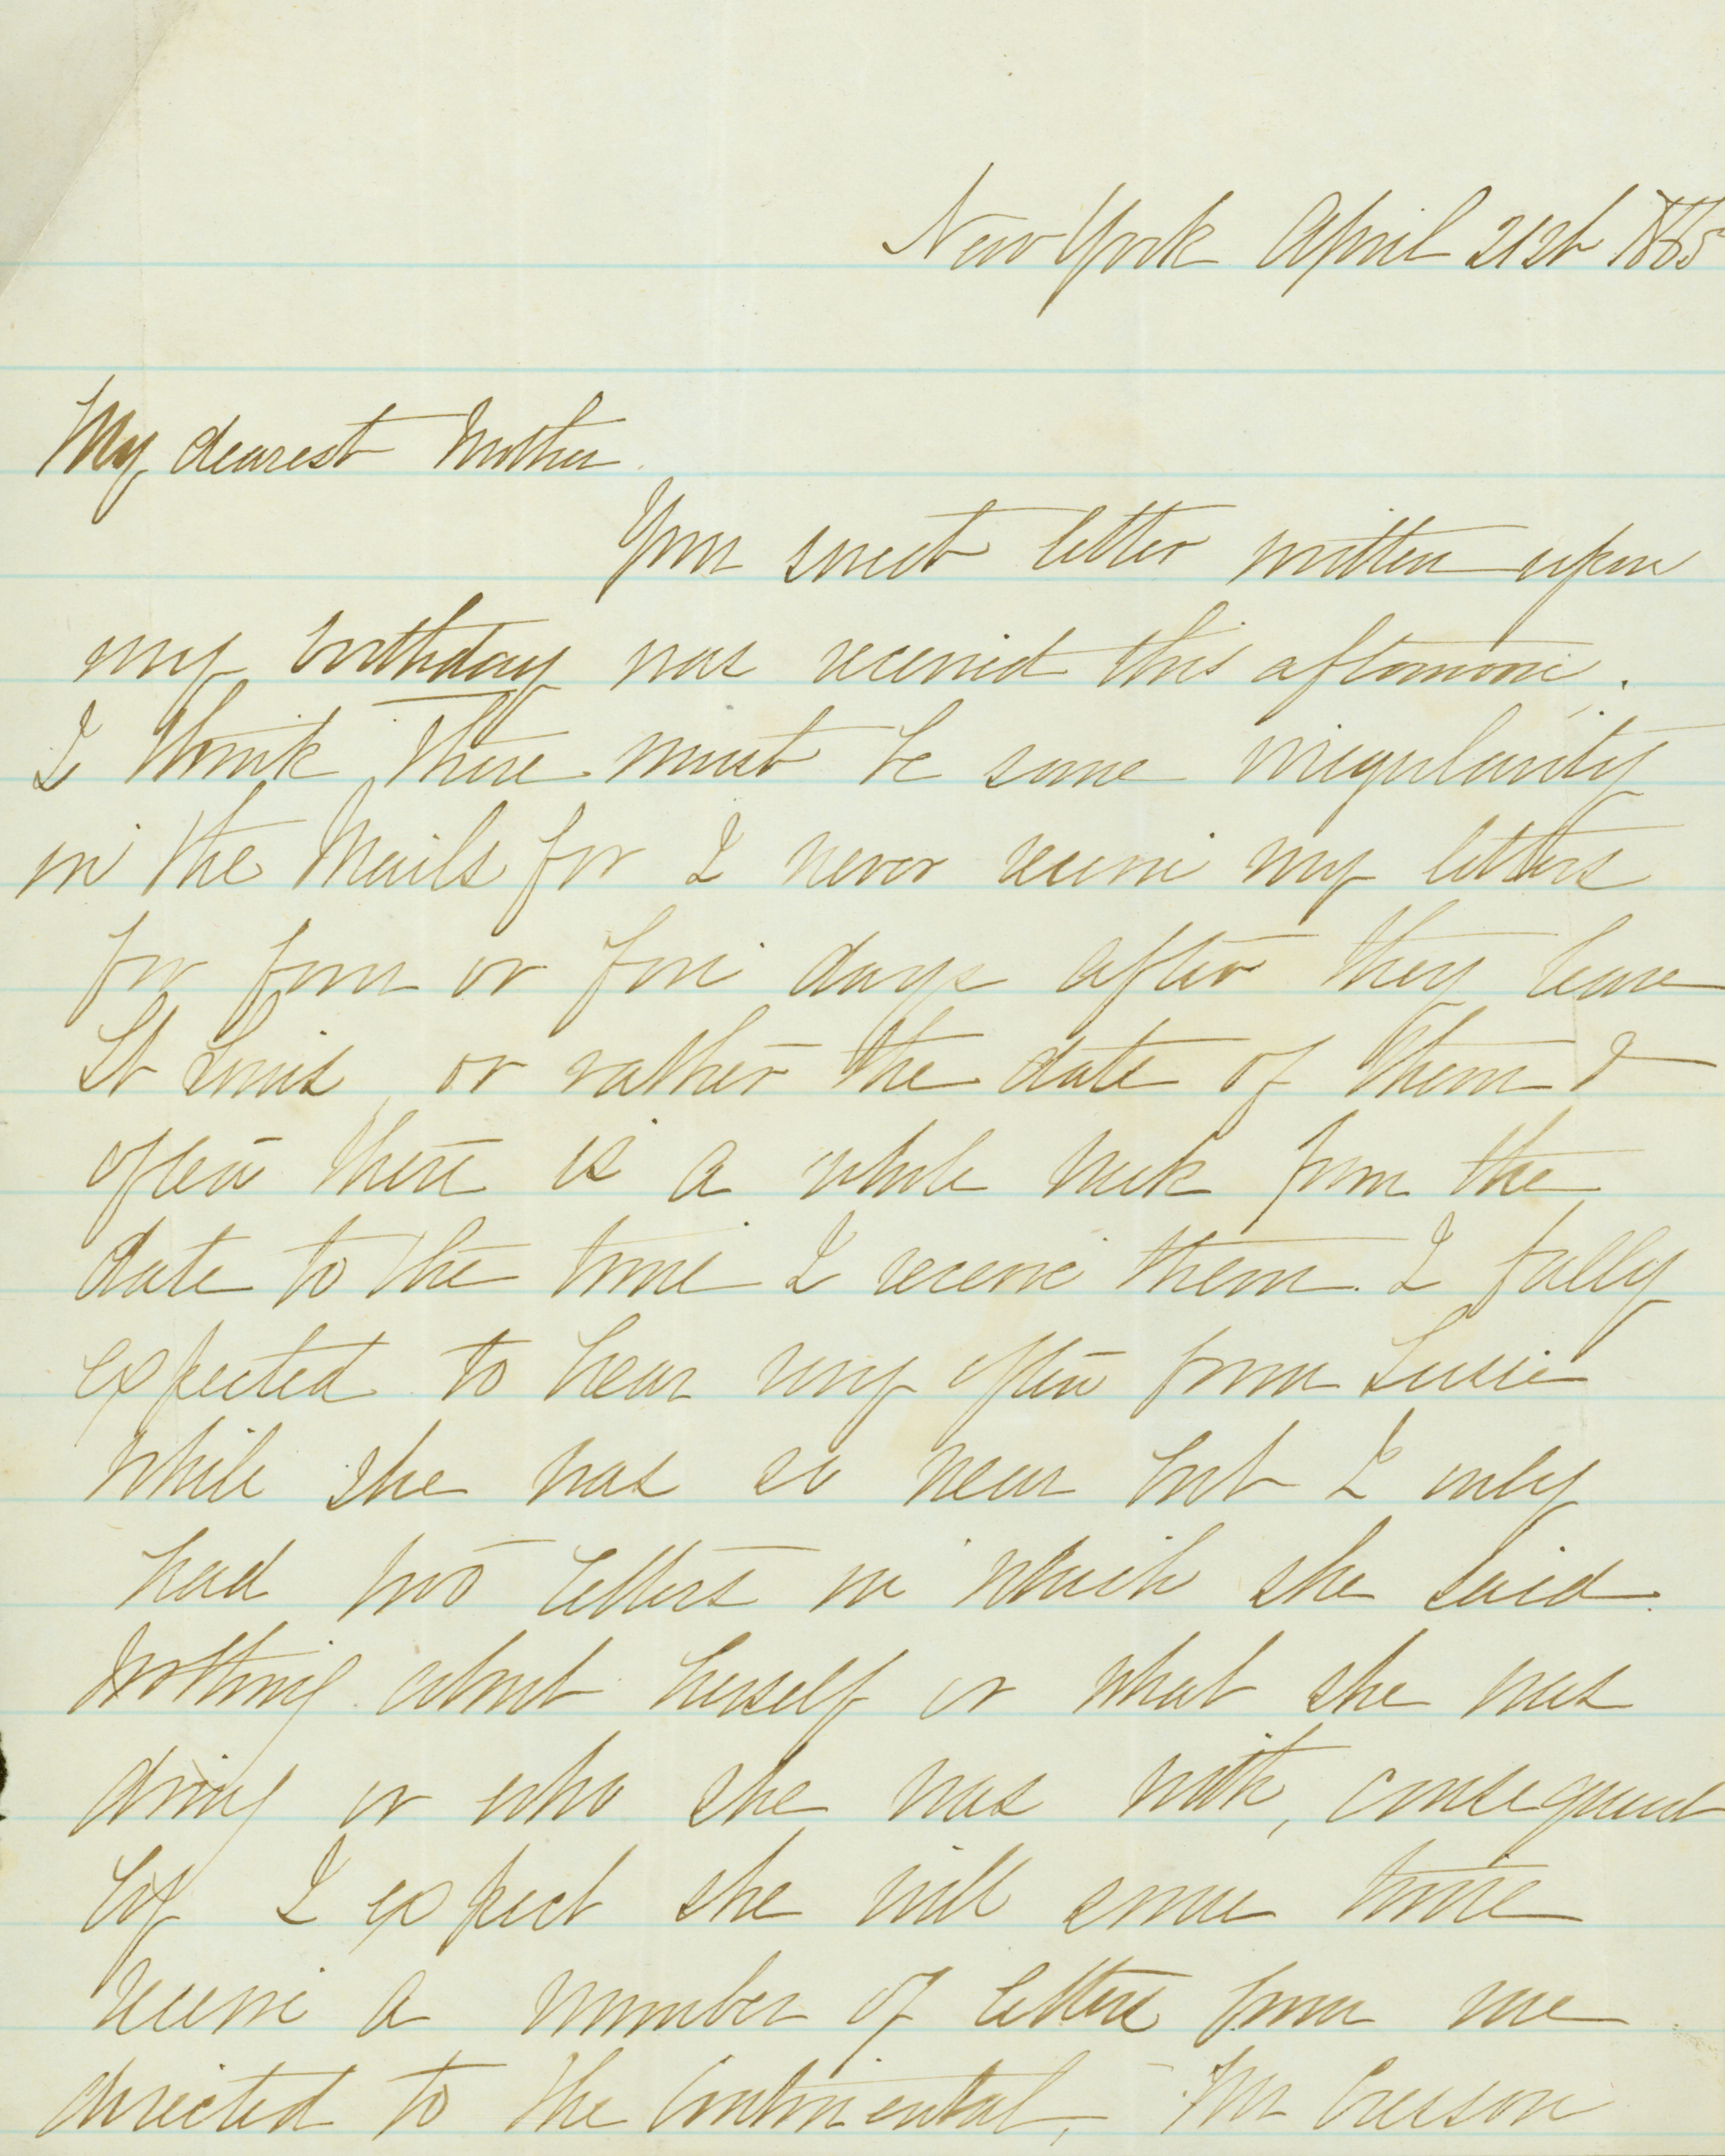 New York April 21st 1865
My dearest Mother.
Your sweet letter written upon
my birthday was received this afternoon.
I think there must be some irregularity
in the Mails for I never receive my letters
for four or five days after they leave
St Louis, or rather the date of them &
often there is a whole week from the
date to the time I receive them. I fully
expected to hear very often from Susie
while she was so near but I only
had two letters in which she said
nothing about herself or what she was
doing or who she was with, consequent
ly I expect she will some time
receive a number of letters from me
directed to the Continental, Mr